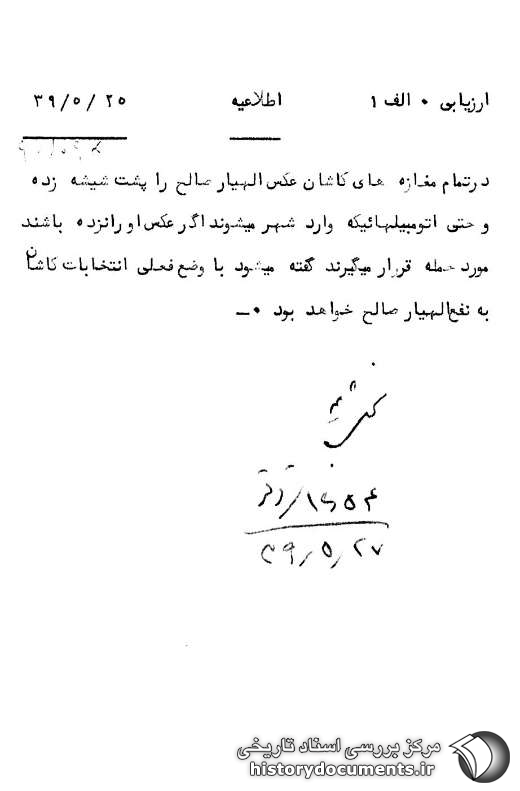 ارزیابی ۰ الف ۱ اطلاعیه ۳۹/۵/۲۵
درتمام مغازه های کاشان عکس الهیار صالح را پشت شیشه زده
و حتی اتومبیلهائیکه وارد شهر میشوند اگر عکس او رانزده باشند
مورد حمله قرار میگیرند گفته میشود با وضع فعلی انتخابات کاشان
به نفع الهیار صالح خواهد بود ۰ــ
۳۹/۵/۲۷
مرکز بررسی اسناد تاریخی
historydocuments.ir